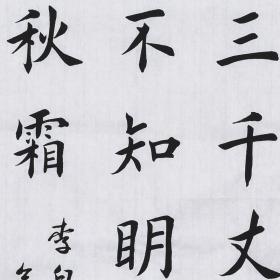 三千丈
不知明
秋霜
李白